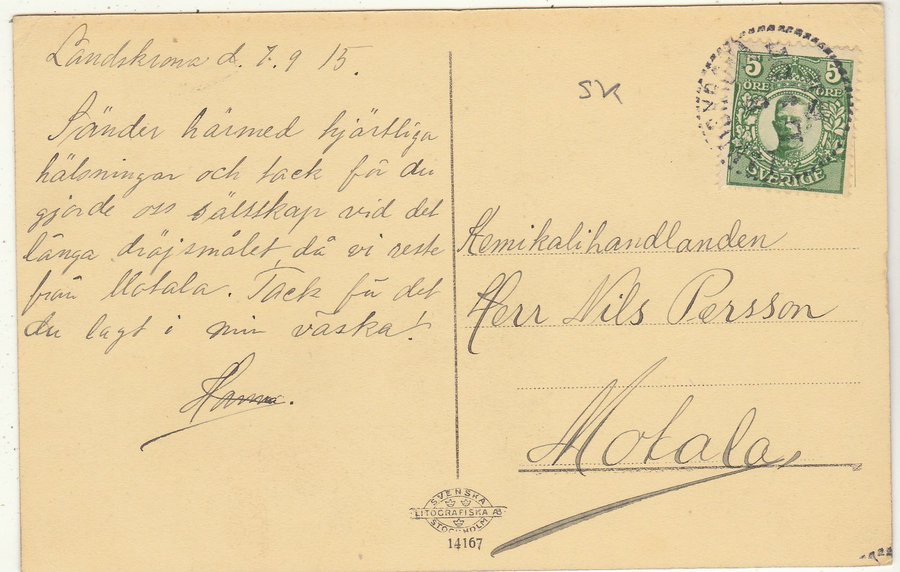 Landskrona d. 7.9 15.
Sänder härmed hjärtliga
hälsningar och tack för du
gjorde oss sälsskap vid det
långa dröjsmålet, då vi reste
från Motala. Tack för det
du lagt i min väska!
Hanna.
SK
5 5
ÖRE ÖRE
SVERIGE
Kemikalihandlanden
Herr Nils Persson
Motala
SVENSKA
LITOGRAFISKA AB
STOCKHOLM
14167